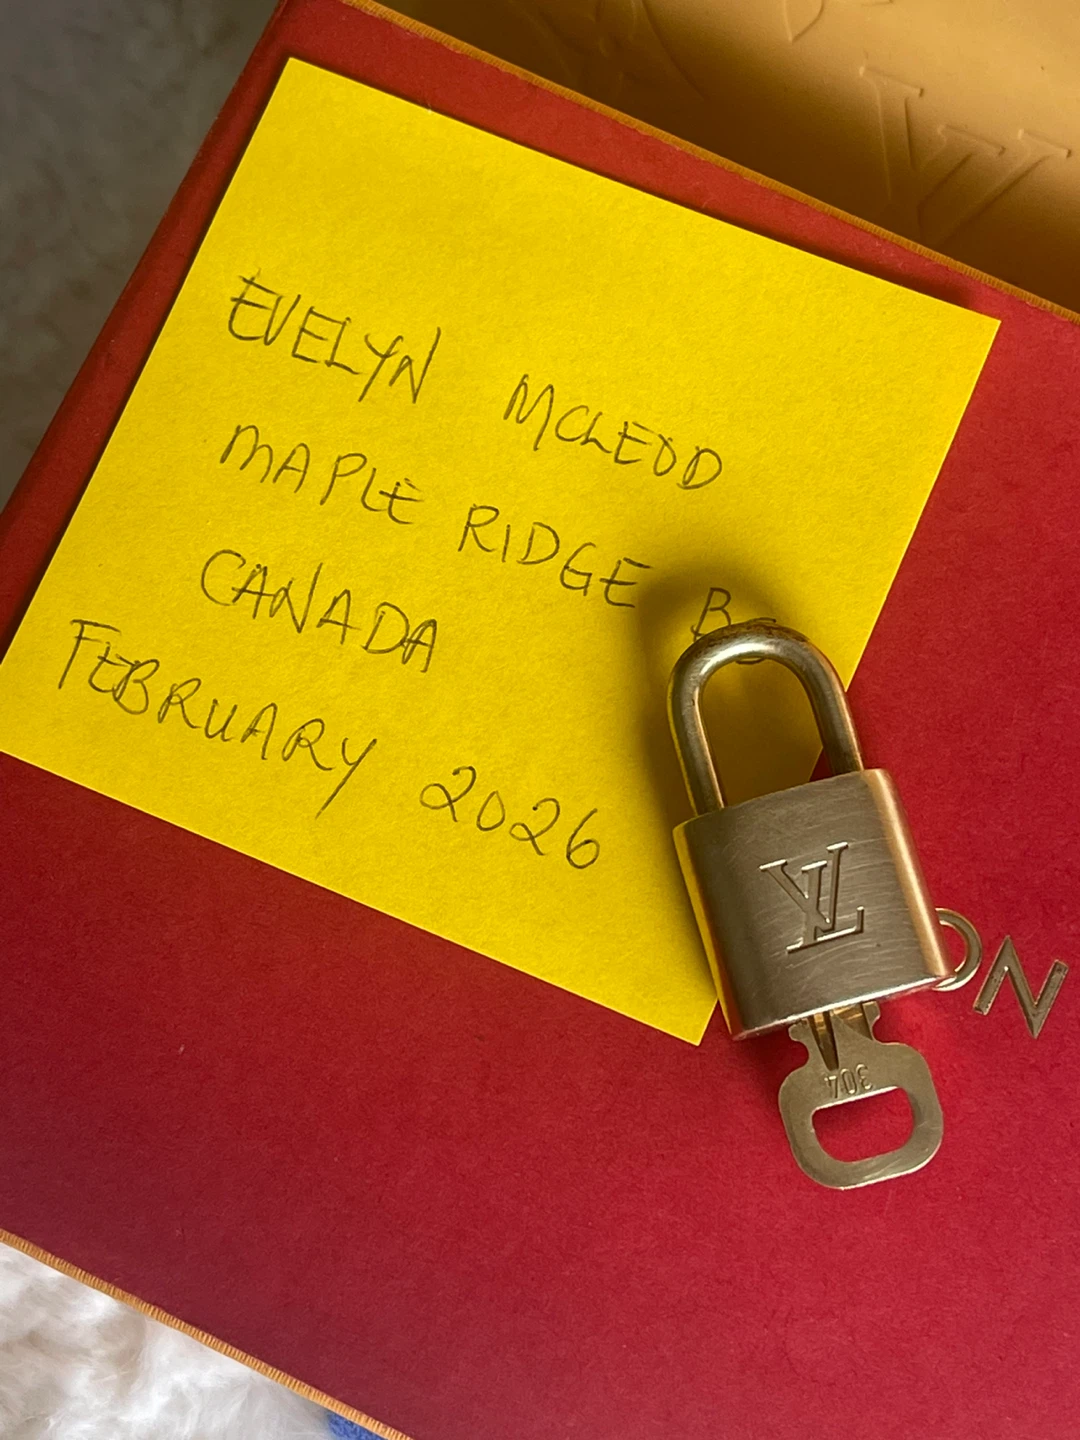 EVELYN MCLEOD
MAPLE RIDGE BC
CANADA
FEBRUARY 2026
LV
ON
304